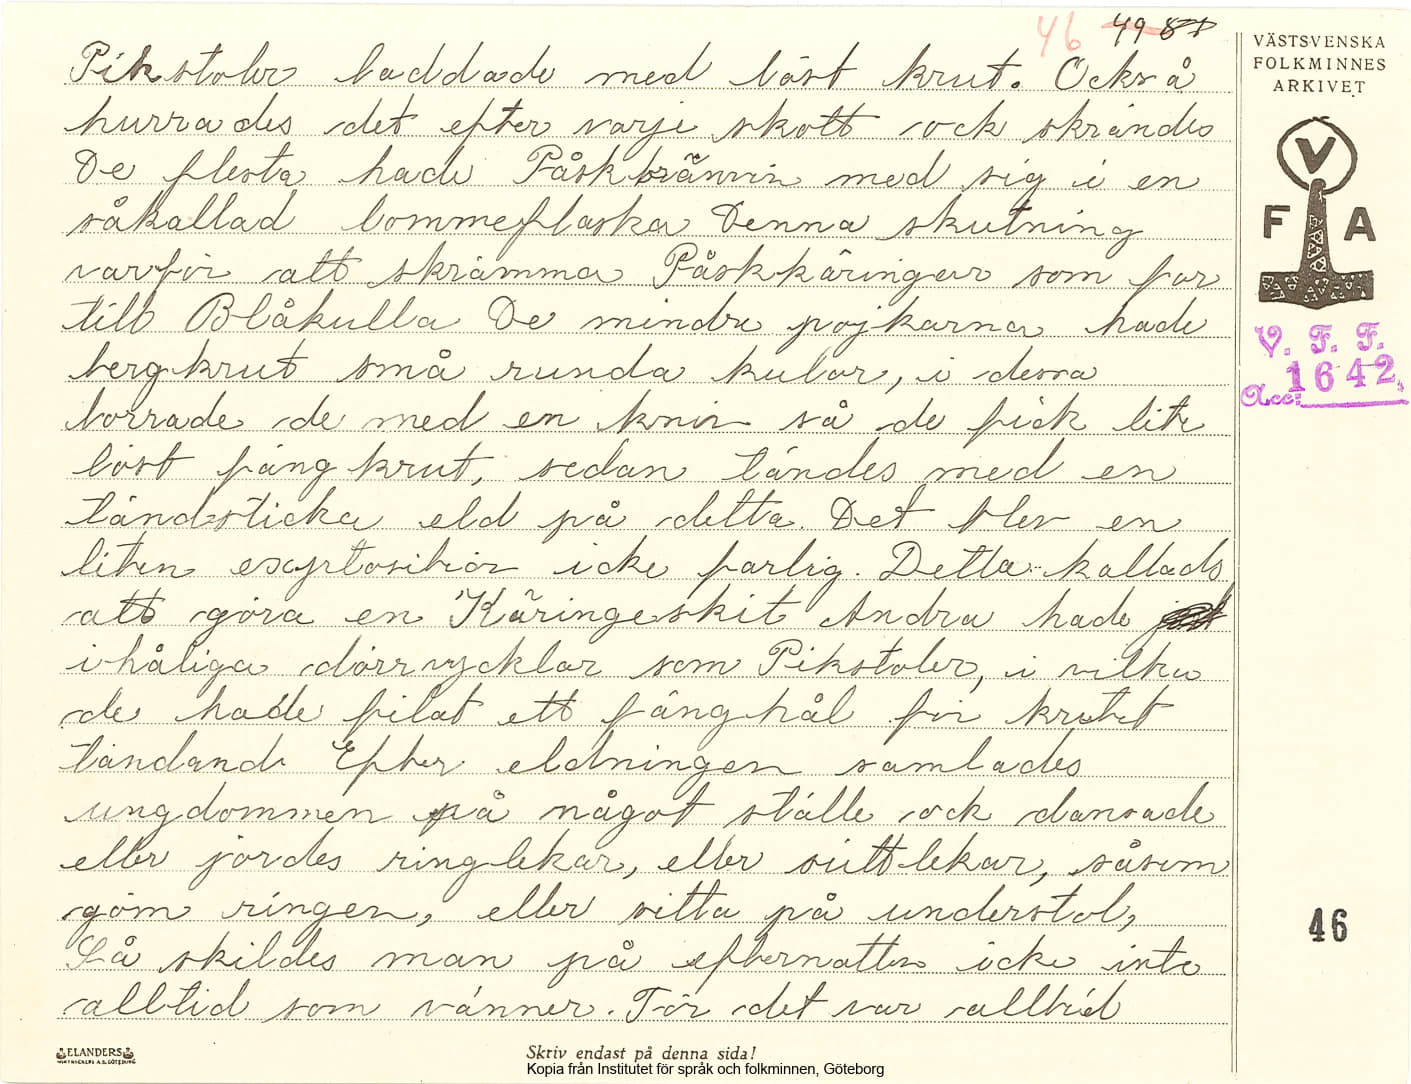 46 49
VÄSTSVENSKA
FOLKMINNES
ARKIVET
V
F A
V. F. F.
Acc: 1642.
Pikstoler laddade med löst krut. Också
hurrades det efter varje skott ock skrändes
De flesta hade Påskbränvin med sig i en
såkallad lommeflaska Denna skutning
var för att skrämma Påskkäringar som for
till Blåkulla De mindre pojkarna hade
bergkrut små runda kulor, i dessa
borrade de med en kniv så de fick lite
löst fängkrut, sedan tändes med en
tändsticka eld på detta. Det blev en
liten explosition icke farlig. Detta kallads
att göra en Käringeskit Andra hade
ihåliga dörrnycklar som Pikstoler, i vilka
de hade filat ett fänghål för krutet
tändand Efter eldningen samlades
ungdommen på något ställe ock dansade
eller jordes ringlekar, eller sittlekar, såsom
göm ringen, eller sitta på understol,
Så skildes man på efternatten icke inte
alltid som vänner. För det var alltid
46
ELANDERS
BOKTRYCKERI A.B. GÖTEBORG
Skriv endast på denna sida!
Kopia från Institutet för språk och folkminnen, Göteborg